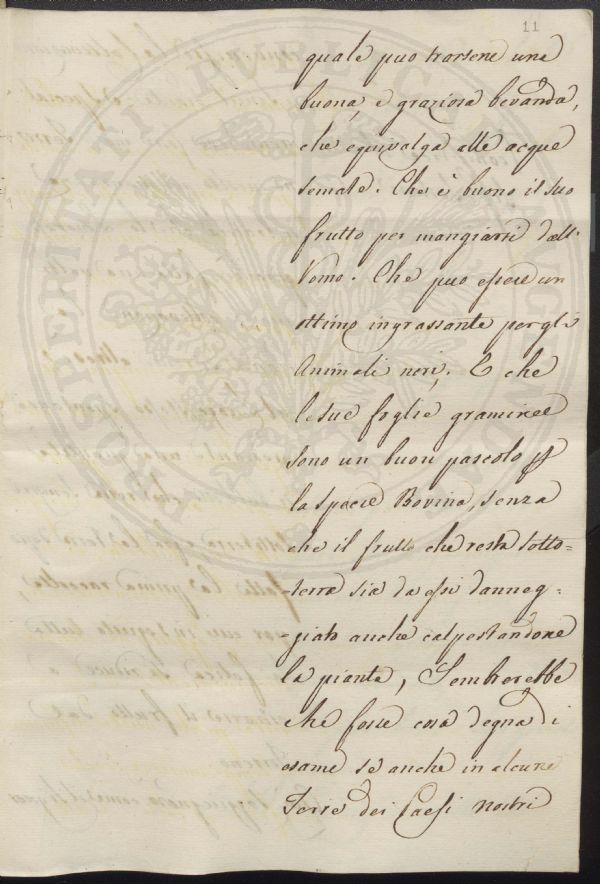 11
quale puo trarsene una
buona, e graziosa bevanda,
che equivalga alle acque
semate. Che è buono il suo
frutto per mangiarsi dall'
Uomo. Che puo essere un
ottimo ingrassante per gli
Animali neri; E che
le sue foglie graminee
sono un buon pascolo p
la specie Bovina, senza
che il frutto che resta sotto=
=terra sia da essi danneg=
=giato anche calpestandone
la pianta, Sembrerebbe
che fosse cosa degna di
esame se anche in alcune
Terre dei Paesi nostri
PROSPERITATI PUBLICAE